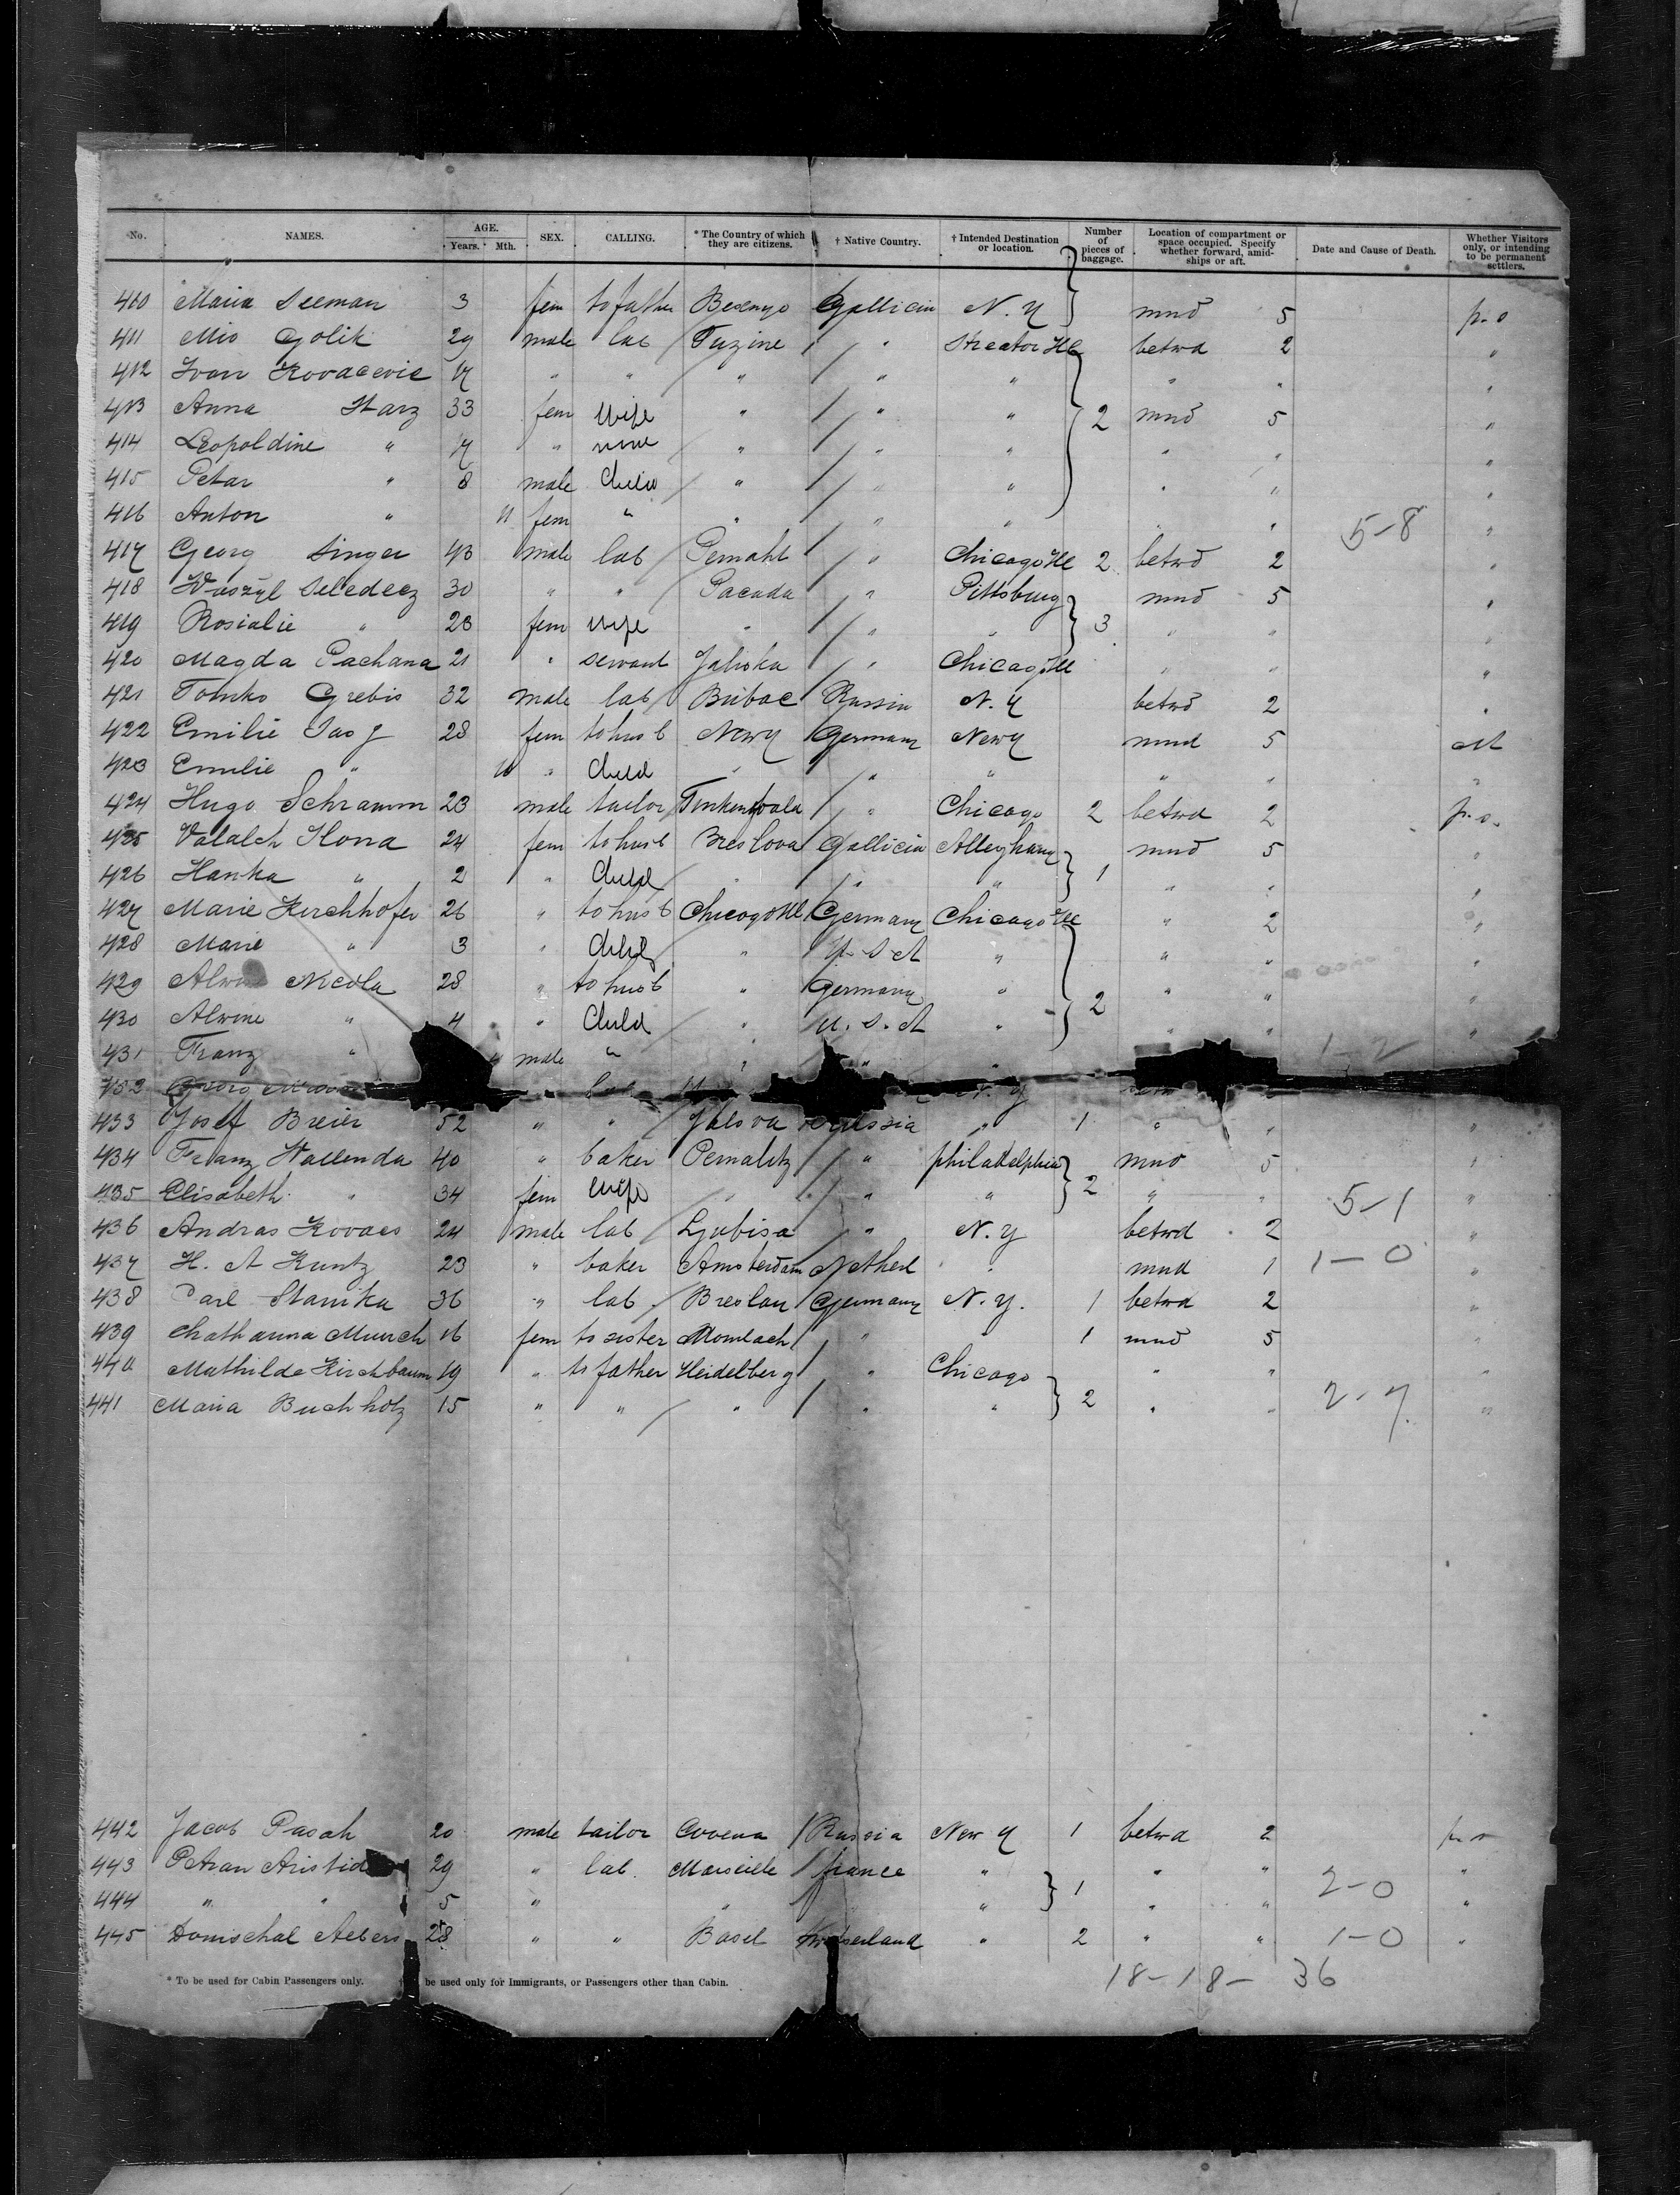 No. NAMES. AGE. Years. Mth. SEX. CALLING. * The Country of which they are citizens. † Native Country. † Intended Destination or location. Number of pieces of baggage. Location of compartment or space occupied. Specify whether forward, amidships or aft. Date and Cause of Death. Whether Visitors only, or intending to be permanent settlers.
410 Maria Seeman 3 fem to father Gallicia N. Y mnd 5 p. s
411 Mio Golik 29 male lab Fuzine " Streator Ill betwd 2 "
412 Ivan Kovacevic 17 " " " " " " " "
413 Anna Starz 33 fem wife " " " 2 mnd 5 "
414 Leopoldine " 17 " none " " " " " "
415 Petar " 8 male Child " " " " " "
416 Anton " 11 fem " " " " " " 5-8 "
417 Georg Singer 43 male lab " Chicago Ill 2 betwd 2 "
418 Waszyl Seledecz 30 " " Pacada " Pittsburg mnd 5 "
419 Rosialie " 23 fem wife " " " 3 " " "
420 Magda Pachana 21 " servant " Chicago Ill " " "
421 Tomko Grebis 32 male lab Russia N. Y betwd 2 "
422 Emilie 28 fem to husb New Y Germany New Y mnd 5
423 Emilie " 10 " Child " " " " " "
424 Hugo Schramm 23 male tailor " Chicago 2 betwd 2 p. s.
425 Valalch Ilona 24 fem to husb Breslova Gallicia Alleghany mnd 5 "
426 Hanka " 2 " Child " " " 1 " " "
427 Marie Kirchhofer 26 " to husb Chicago Ill Germany Chicago Ill " 2 "
428 Marie " 3 " Child " U. S A " " " "
429 Nicola 28 " to husb " Germany " 2 " " "
430 Alwine " 4 " Child " U. S. A " " " "
431 Franz " male " " " " 1-2
432 Georg lab N. Y
433 Josef Breier 52 " " Jalsova " 1 " " "
434 Franz Wallenda 40 " baker " philadelphia mnd 5 "
435 Elisabeth " 34 fem wife " " " 2 " " 5-1 "
436 Andras Kovacs 24 male lab Ljubisa " N. Y betwd 2 "
437 H. A Kuntz 23 " baker Amsterdam Netherl " mnd 1 1-0 "
438 Carl Stanika 36 " lab Breslau Germany N. Y. 1 betwd 2 "
439 Munch 16 fem to sister Mombach " 1 mnd 5 "
440 Mathilde Kirchbaum 19 " to father Heidelberg " Chicago " " "
441 Maria Buchholz 15 " " " " " 2 " " 2-7 "
442 Jacob Pasah 20 male tailor Russia New Y 1 betwd 2 p. s
443 Petran 29 " lab. Marseille france " " " "
444 " " 5 " " " 1 " " 2-0 "
445 Aebers 28 " " Basel " 2 " " 1-0 "
* To be used for Cabin Passengers only. be used only for Immigrants, or Passengers other than Cabin.
18-18- 36